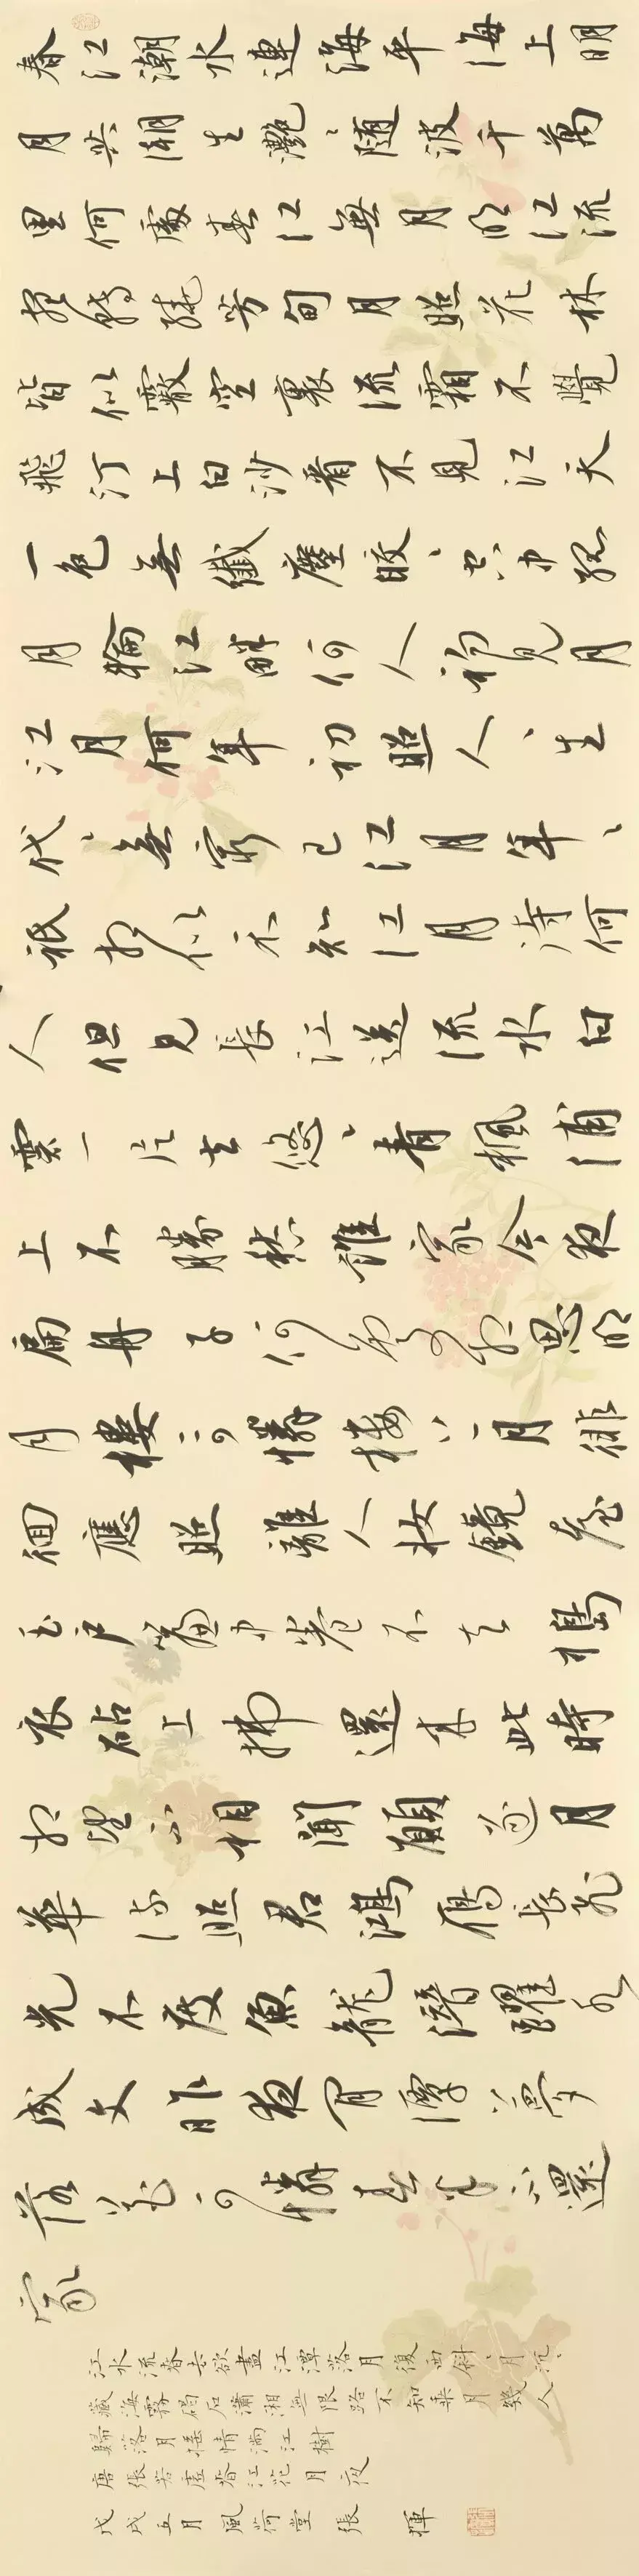 春江潮水連海平海上明
月共潮生灧〻随波千萬
里何處春江無月明江流
宛轉繞芳甸月照花林
皆似霰空裏流霜不覺
飛汀上白沙看不見江天
一色無纖塵皎〻空中孤
月輪江畔何人初見月
江月何年初照人〻生
代〻無窮已江月年〻
祇相似不知江月待何
人但見長江送流水白
雲一片去悠〻青楓浦
上不勝愁誰家今夜
扁舟子何處相思明
月樓可憐樓上月徘
徊應照離人妝鏡臺
玉戶簾中卷不去搗
衣砧上拂還來此時
相望不相聞願逐月
華流照君鴻雁長飛
光不度魚龍潛躍水
成文昨夜閒潭夢
落花可憐春半不還
家
江水流春去欲盡江潭落月復西斜〻月沉〻
藏海霧碣石瀟湘無限路不知乘月幾人
歸落月搖情滿江樹
唐張若虛春江花月夜
戊戌五月風荷堂張惲